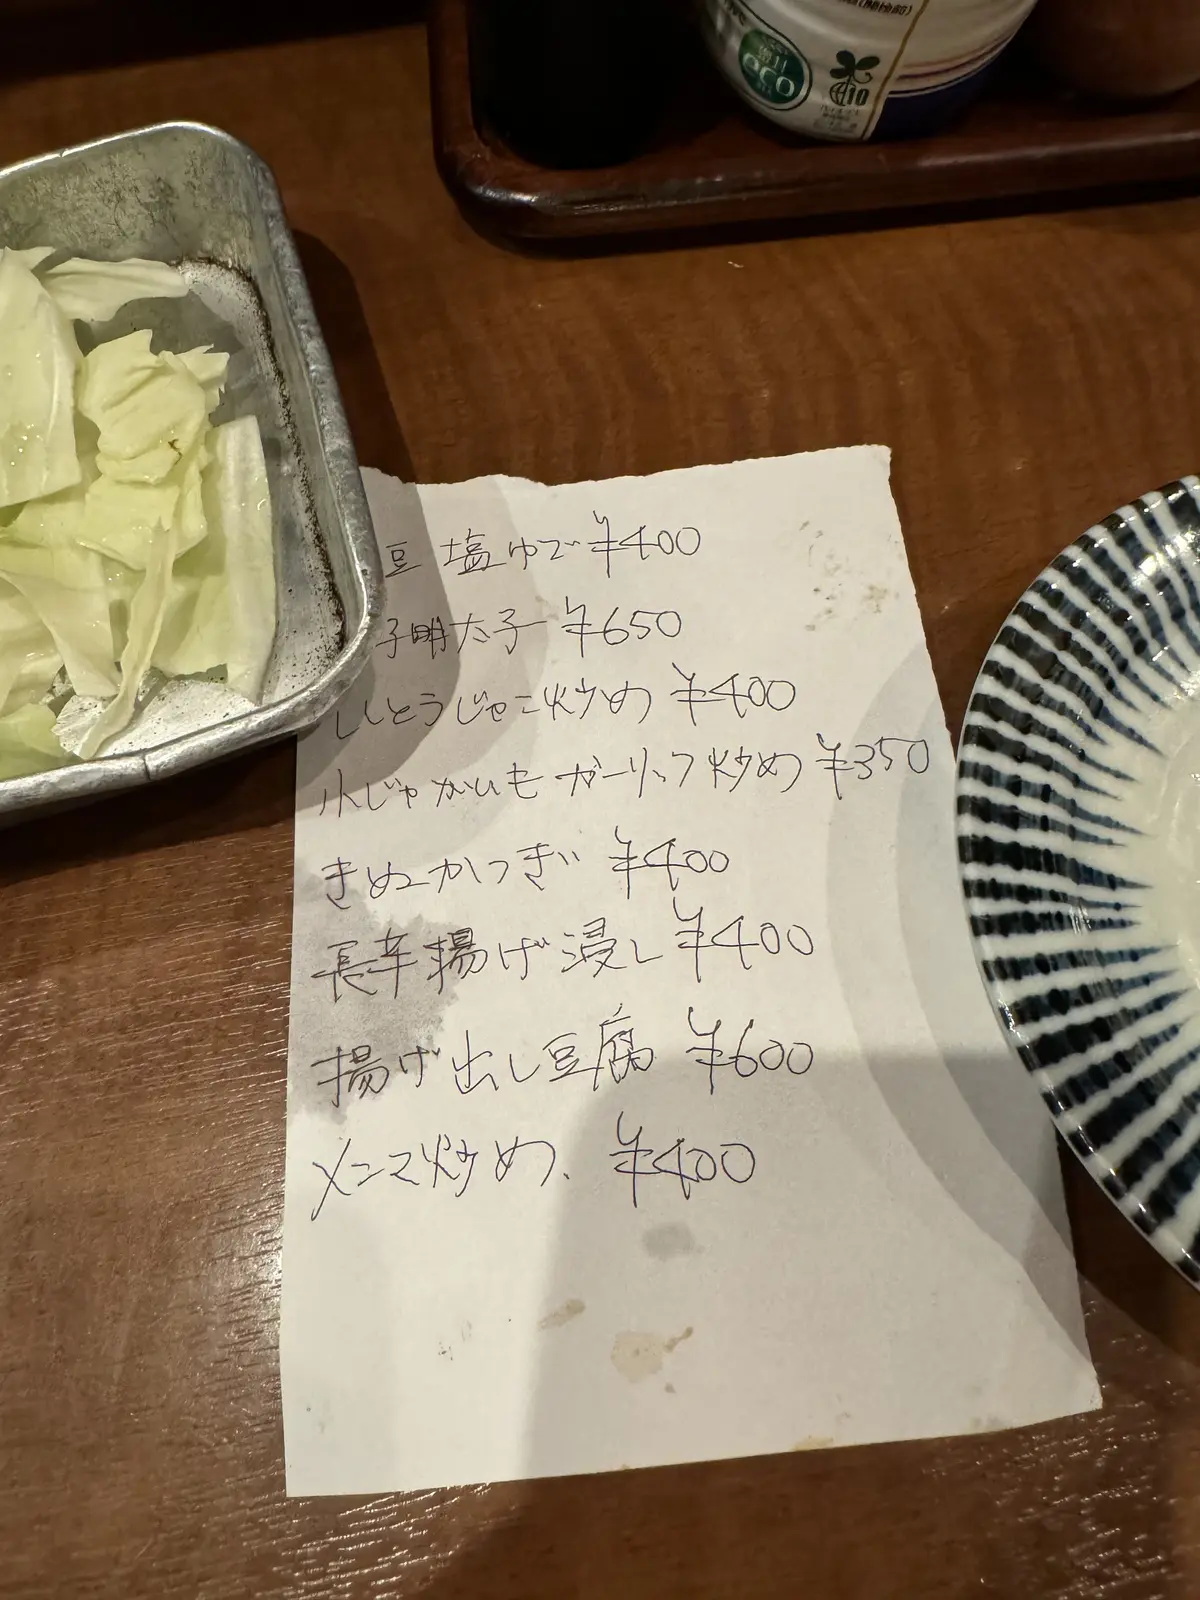 eco
10
豆 塩ゆで ¥400
子明太子 ¥650
ししとうじゃこ炒め ¥400
小じゃがいも ガーリック炒め ¥350
きぬかつぎ ¥400
長芋揚げ浸し ¥400
揚げ出し豆腐 ¥600
メンマ炒め、 ¥400